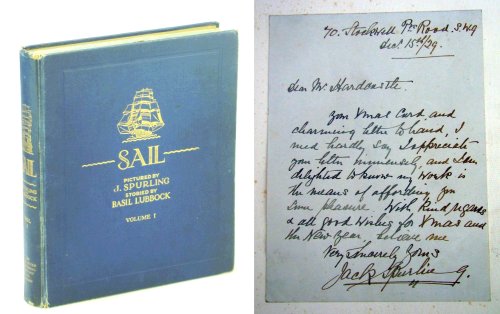 SAIL
SAIL
PICTURED BY
J. SPURLING
STORIED BY
BASIL LUBBOCK
VOLUME I
70. Stockwell Pk Road. S.W.9
Dec. 15th/29.
Dear Mr Hardcastle
Your Xmas Card and
charming letter to hand, I
need hardly say I appreciate
your letter immensely and I am
delighted to know my work is
the means of affording you
some pleasure. With Kind regards
& all good wishes for Xmas and
the New Year. believe me
Very Sincerely Yours
Jack Spurling.